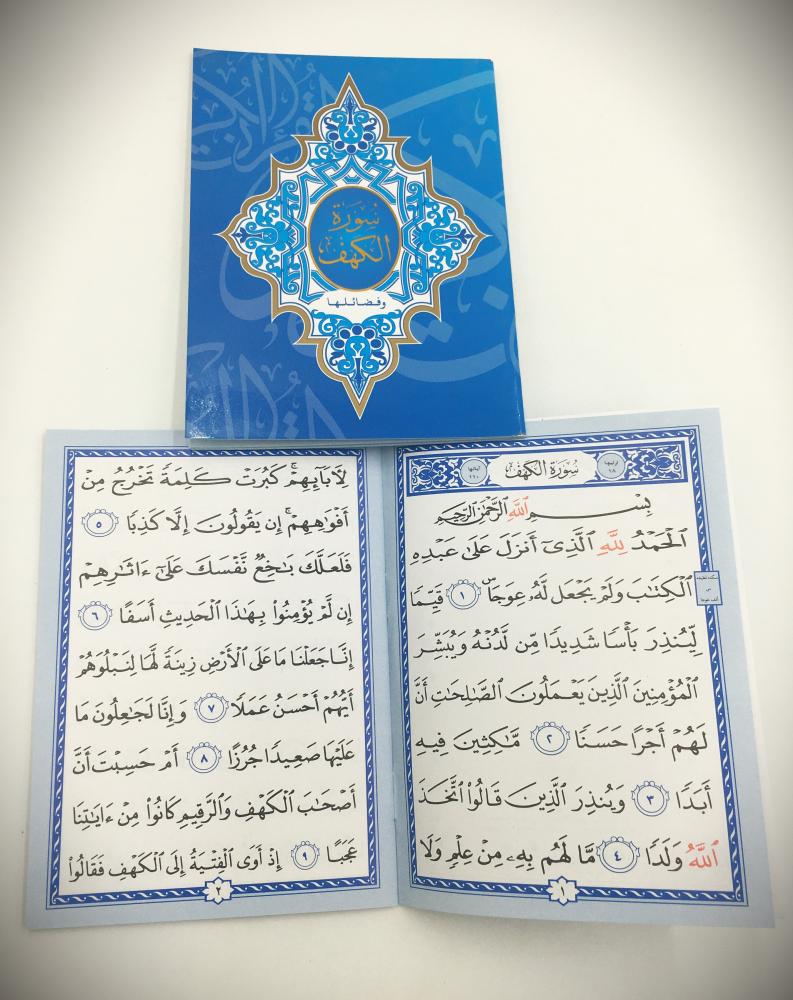 سُورَةُ
الكهف
وفضائلها
ترتيبها
١٨
سُورَةُ الكَهْفِ
آياتها
١١٠
بِسْمِ ٱللَّهِ ٱلرَّحْمَٰنِ ٱلرَّحِيمِ
ٱلْحَمْدُ لِلَّهِ ٱلَّذِىٓ أَنزَلَ عَلَىٰ عَبْدِهِ
ٱلْكِتَٰبَ وَلَمْ يَجْعَل لَّهُۥ عِوَجَاۜ ١ قَيِّمًا
لِّيُنذِرَ بَأْسًا شَدِيدًا مِّن لَّدُنْهُ وَيُبَشِّرَ
ٱلْمُؤْمِنِينَ ٱلَّذِينَ يَعْمَلُونَ ٱلصَّٰلِحَٰتِ أَنَّ
لَهُمْ أَجْرًا حَسَنًا ٢ مَّٰكِثِينَ فِيهِ
أَبَدًا ٣ وَيُنذِرَ ٱلَّذِينَ قَالُوا۟ ٱتَّخَذَ
ٱللَّهُ وَلَدًا ٤ مَّا لَهُم بِهِۦ مِنْ عِلْمٍ وَلَا
١
لِـَٔابَآئِهِمْ ۚ كَبُرَتْ كَلِمَةً تَخْرُجُ مِنْ
أَفْوَٰهِهِمْ ۚ إِن يَقُولُونَ إِلَّا كَذِبًا ٥
فَلَعَلَّكَ بَٰخِعٌ نَّفْسَكَ عَلَىٰٓ ءَاثَٰرِهِمْ
إِن لَّمْ يُؤْمِنُوا۟ بِهَٰذَا ٱلْحَدِيثِ أَسَفًا ٦
إِنَّا جَعَلْنَا مَا عَلَى ٱلْأَرْضِ زِينَةً لَّهَا لِنَبْلُوَهُمْ
أَيُّهُمْ أَحْسَنُ عَمَلًا ٧ وَإِنَّا لَجَٰعِلُونَ مَا
عَلَيْهَا صَعِيدًا جُرُزًا ٨ أَمْ حَسِبْتَ أَنَّ
أَصْحَٰبَ ٱلْكَهْفِ وَٱلرَّقِيمِ كَانُوا۟ مِنْ ءَايَٰتِنَا
عَجَبًا ٩ إِذْ أَوَى ٱلْفِتْيَةُ إِلَى ٱلْكَهْفِ فَقَالُوا۟
٢